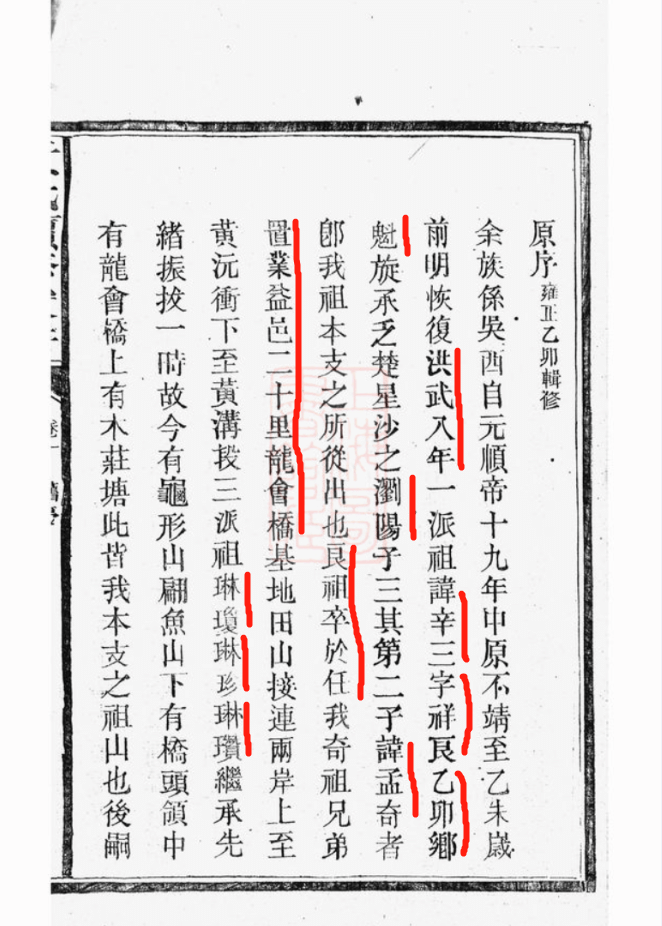 原序 雍正乙卯輯修
余族係吳西自元順帝十九年中原不靖至乙未歲
前明恢復洪武八年一派祖諱辛三字祥良乙卯鄉
魁旋承乏楚星沙之瀏陽子三其第二子諱孟奇者
卽我祖本支之所從出也良祖卒於任我奇祖兄弟
置業益邑二十里龍會橋基地田山接連兩岸上至
黃沅衝下至黃溝段三派祖琳瓊琳珍琳瓚繼承先
緒振拔一時故今有龜形山翩魚山下有橋頭領中
有龍會橋上有木莊塘此皆我本支之祖山也後嗣
卷一